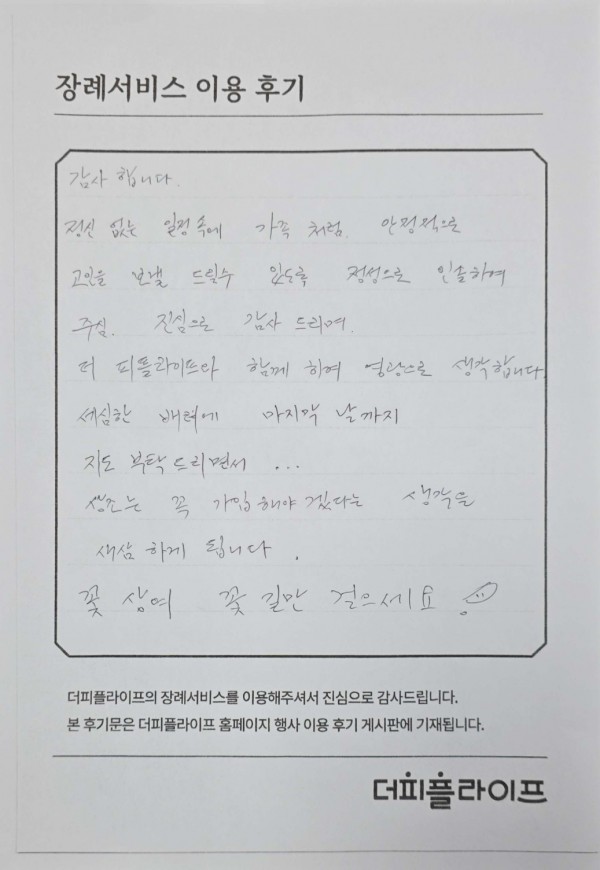 장례서비스 이용 후기
감사 합니다.
정신 없는 일정 속에 가족 처럼. 안정적으로
고인을 보낼 드릴수 있도록 정성으로 인솔하여
주심. 진심으로 감사 드리며.
더 피플라이프와 함께 하여 영광으로 생각합니다.
세심한 배려에 마지막 날까지
지도 부탁 드리면서 ...
상조는 꼭 가입해야 겠다는 생각을
새삼 하게 됩니다.
꽃 상여 꽃 길만 걸으세요
더피플라이프의 장례서비스를 이용해주셔서 진심으로 감사드립니다.
본 후기문은 더피플라이프 홈페이지 행사 이용 후기 게시판에 기재됩니다.
더피플라이프